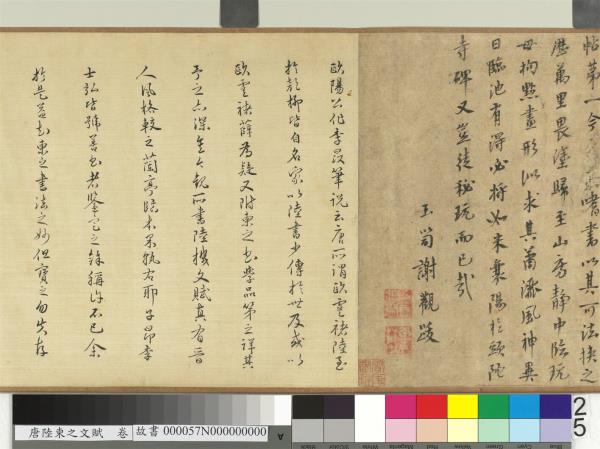 帖第一今嗜書以其可法挾之
歷萬里畏塗歸至山房靜中臨玩
毋拘點畫形似求其蕭散風神異
日臨池有得必將如米襄陽於頭陀
寺碑又豈徒秘玩而已哉
玉笥謝觀跋
歐陽公作李晸筆說云唐所謂歐虞褚陸至
於顏柳皆自名家以陸書少傳於世及或以
歐虞褚薛為疑又附柬之書學品第之詳其
予之亦深矣今觀所書陸機文賦真有晉
人風格較之蘭亭臨本果孰右耶子昂李
士弘皆號善書者鑒定之餘稱許不已余
於是益知柬之書法之妙但寶之勿失存
唐陸柬之文賦 卷 故書 000057N000000000
A
25
Black White Magenta Red Yellow Green Cyan Blue